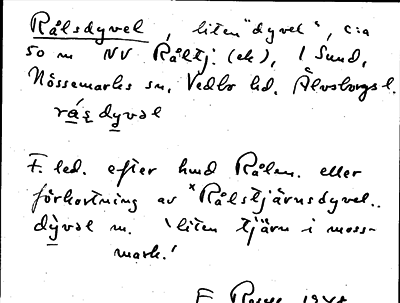 Rålsdyvel, liten "dyvel", c:a
50 m NV Råltj. (ek), 1 Sund,
Nössemarks sn, Vedbo hd, Älvsborgs l.
dyvəl
F. led. efter hmd Rålen. eller
förkortning av *Rålstjärnsdyvel..
dyvəl m. 'liten tjärn i moss-
mark.'